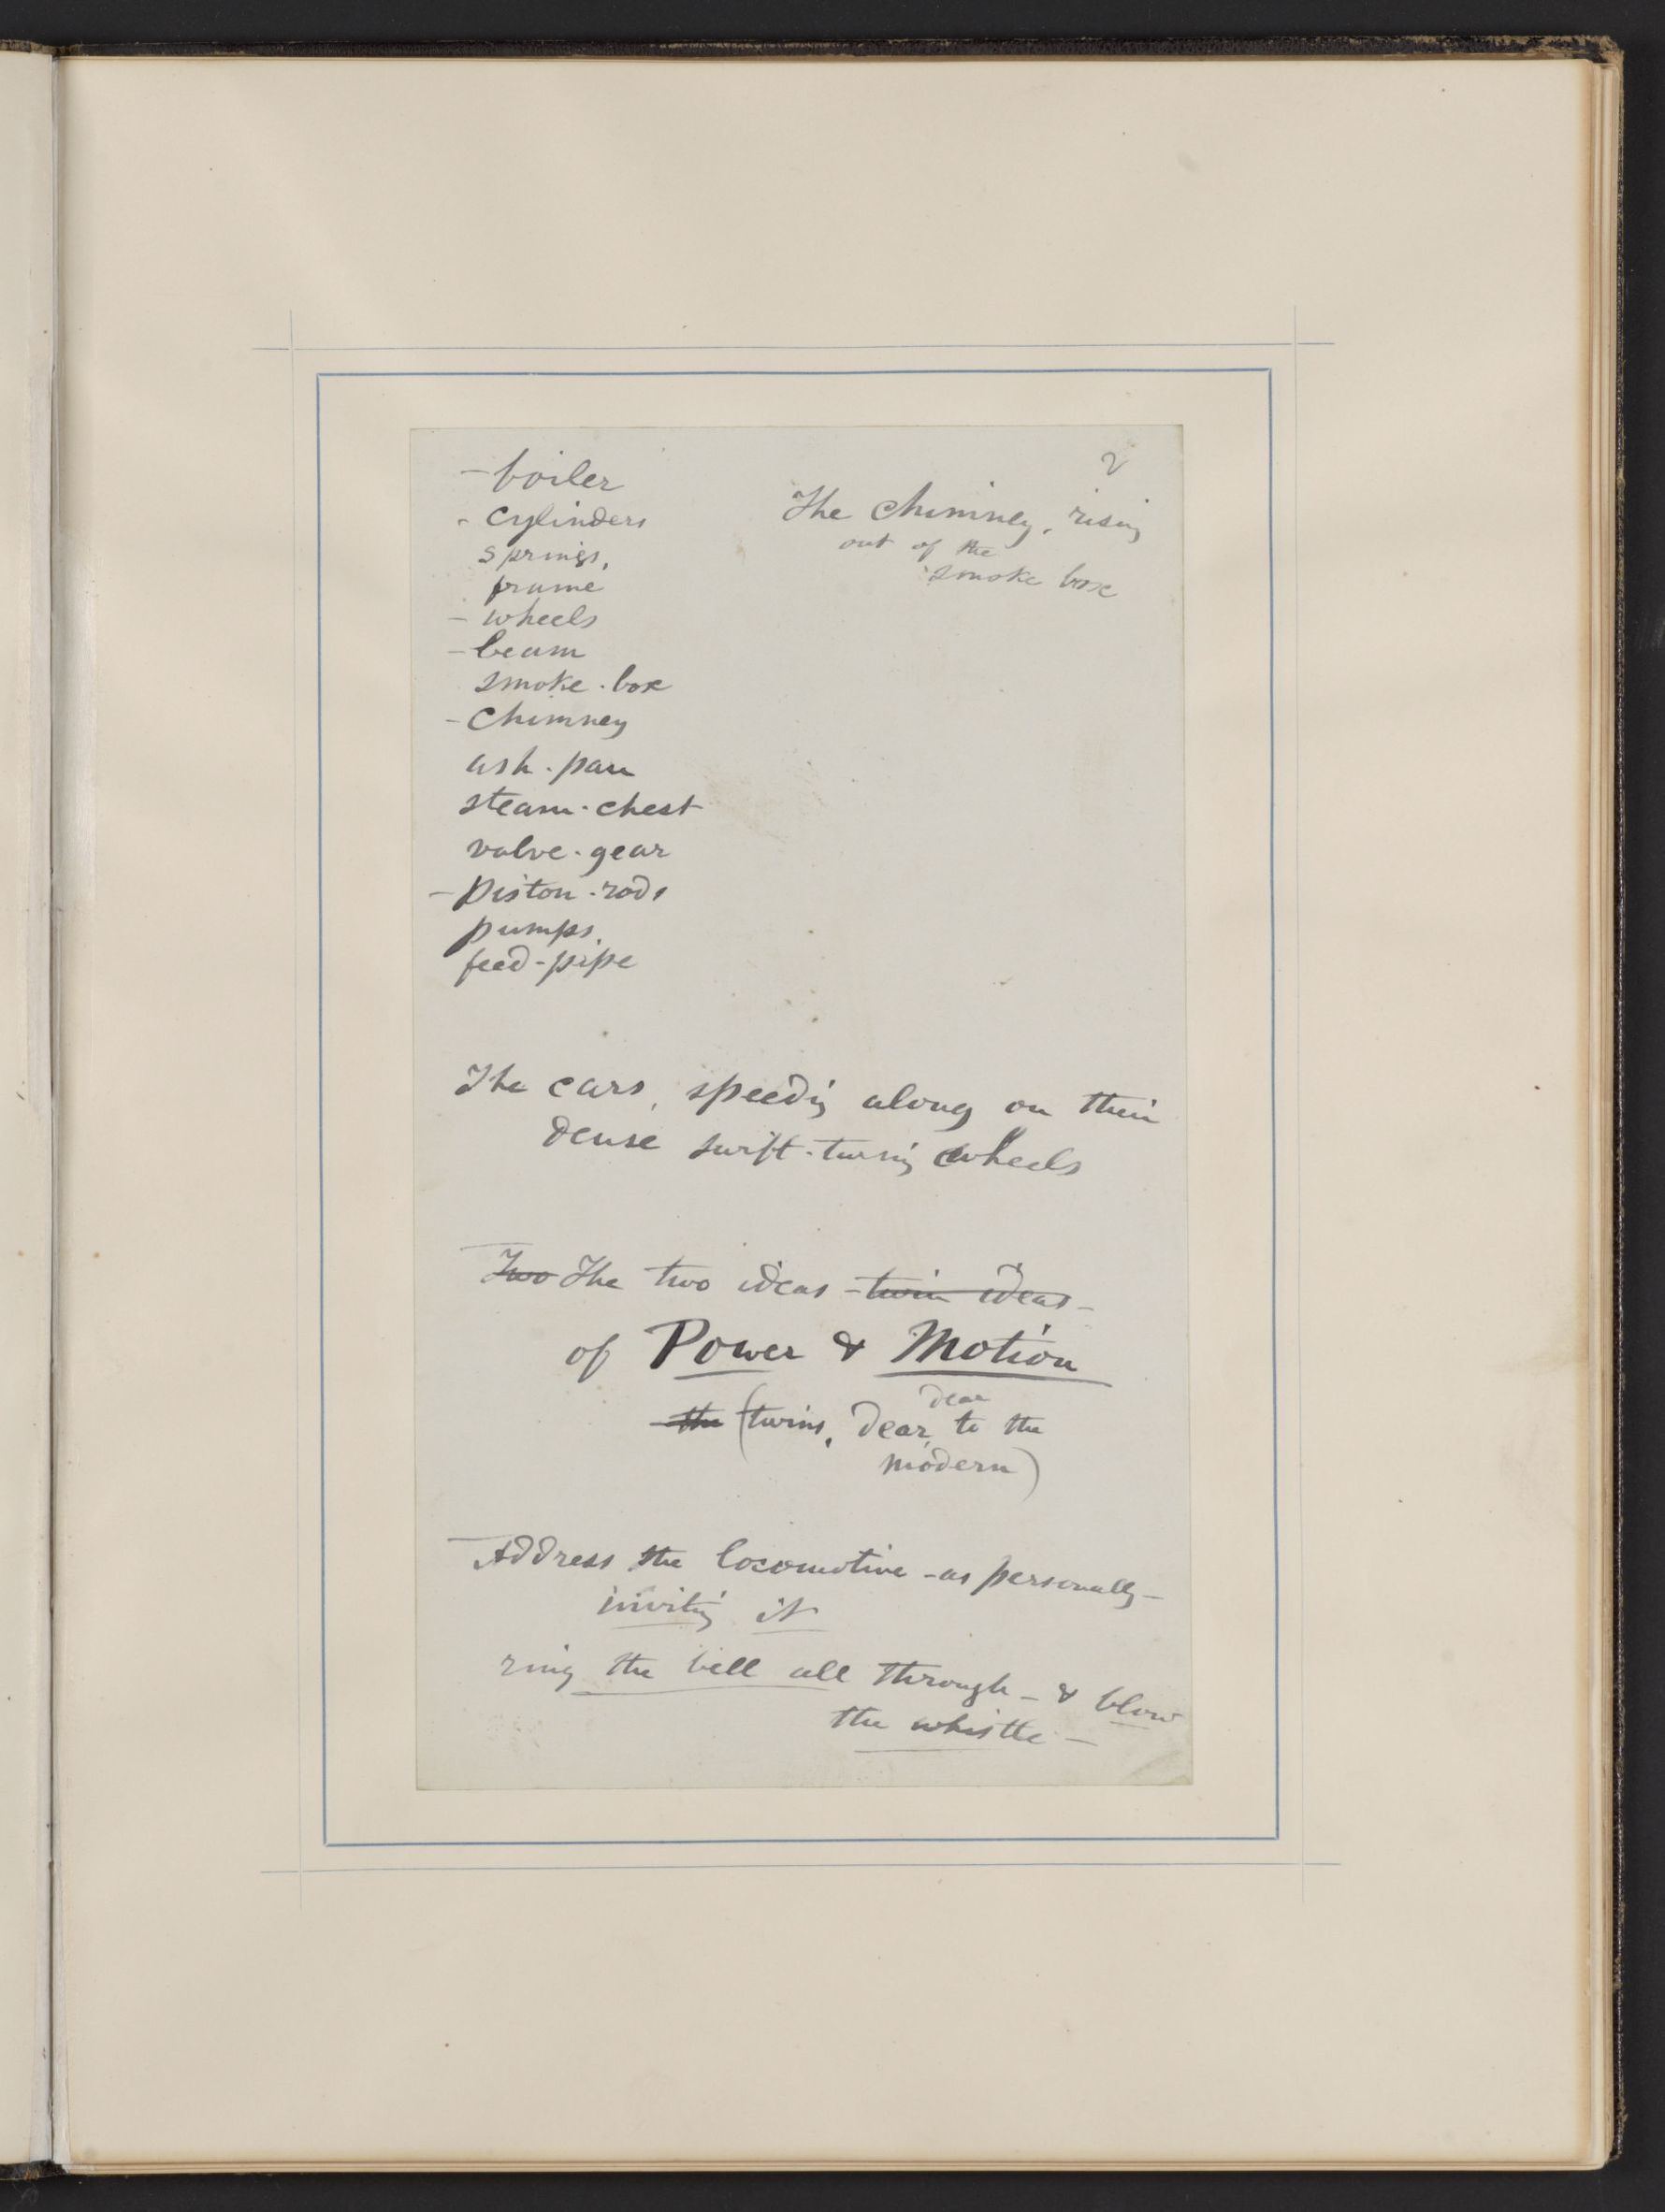 2
– boiler
- cylinders
springs,
frame
– wheels
– beam
smoke-box
– chimney
ash-pan
steam-chest
valve-gear
– piston-rods
pumps,
feed-pipe
The chimney, rising
out of the
smoke box
The cars, speeding along on their
dense swift-turning wheels
Two The two ideas – twin ideas –
of Power & Motion
dear
the (twins, dear, to the
modern)
Address the locomotive – as personally –
inviting it
ring the bell all through – & blow
the whistle –